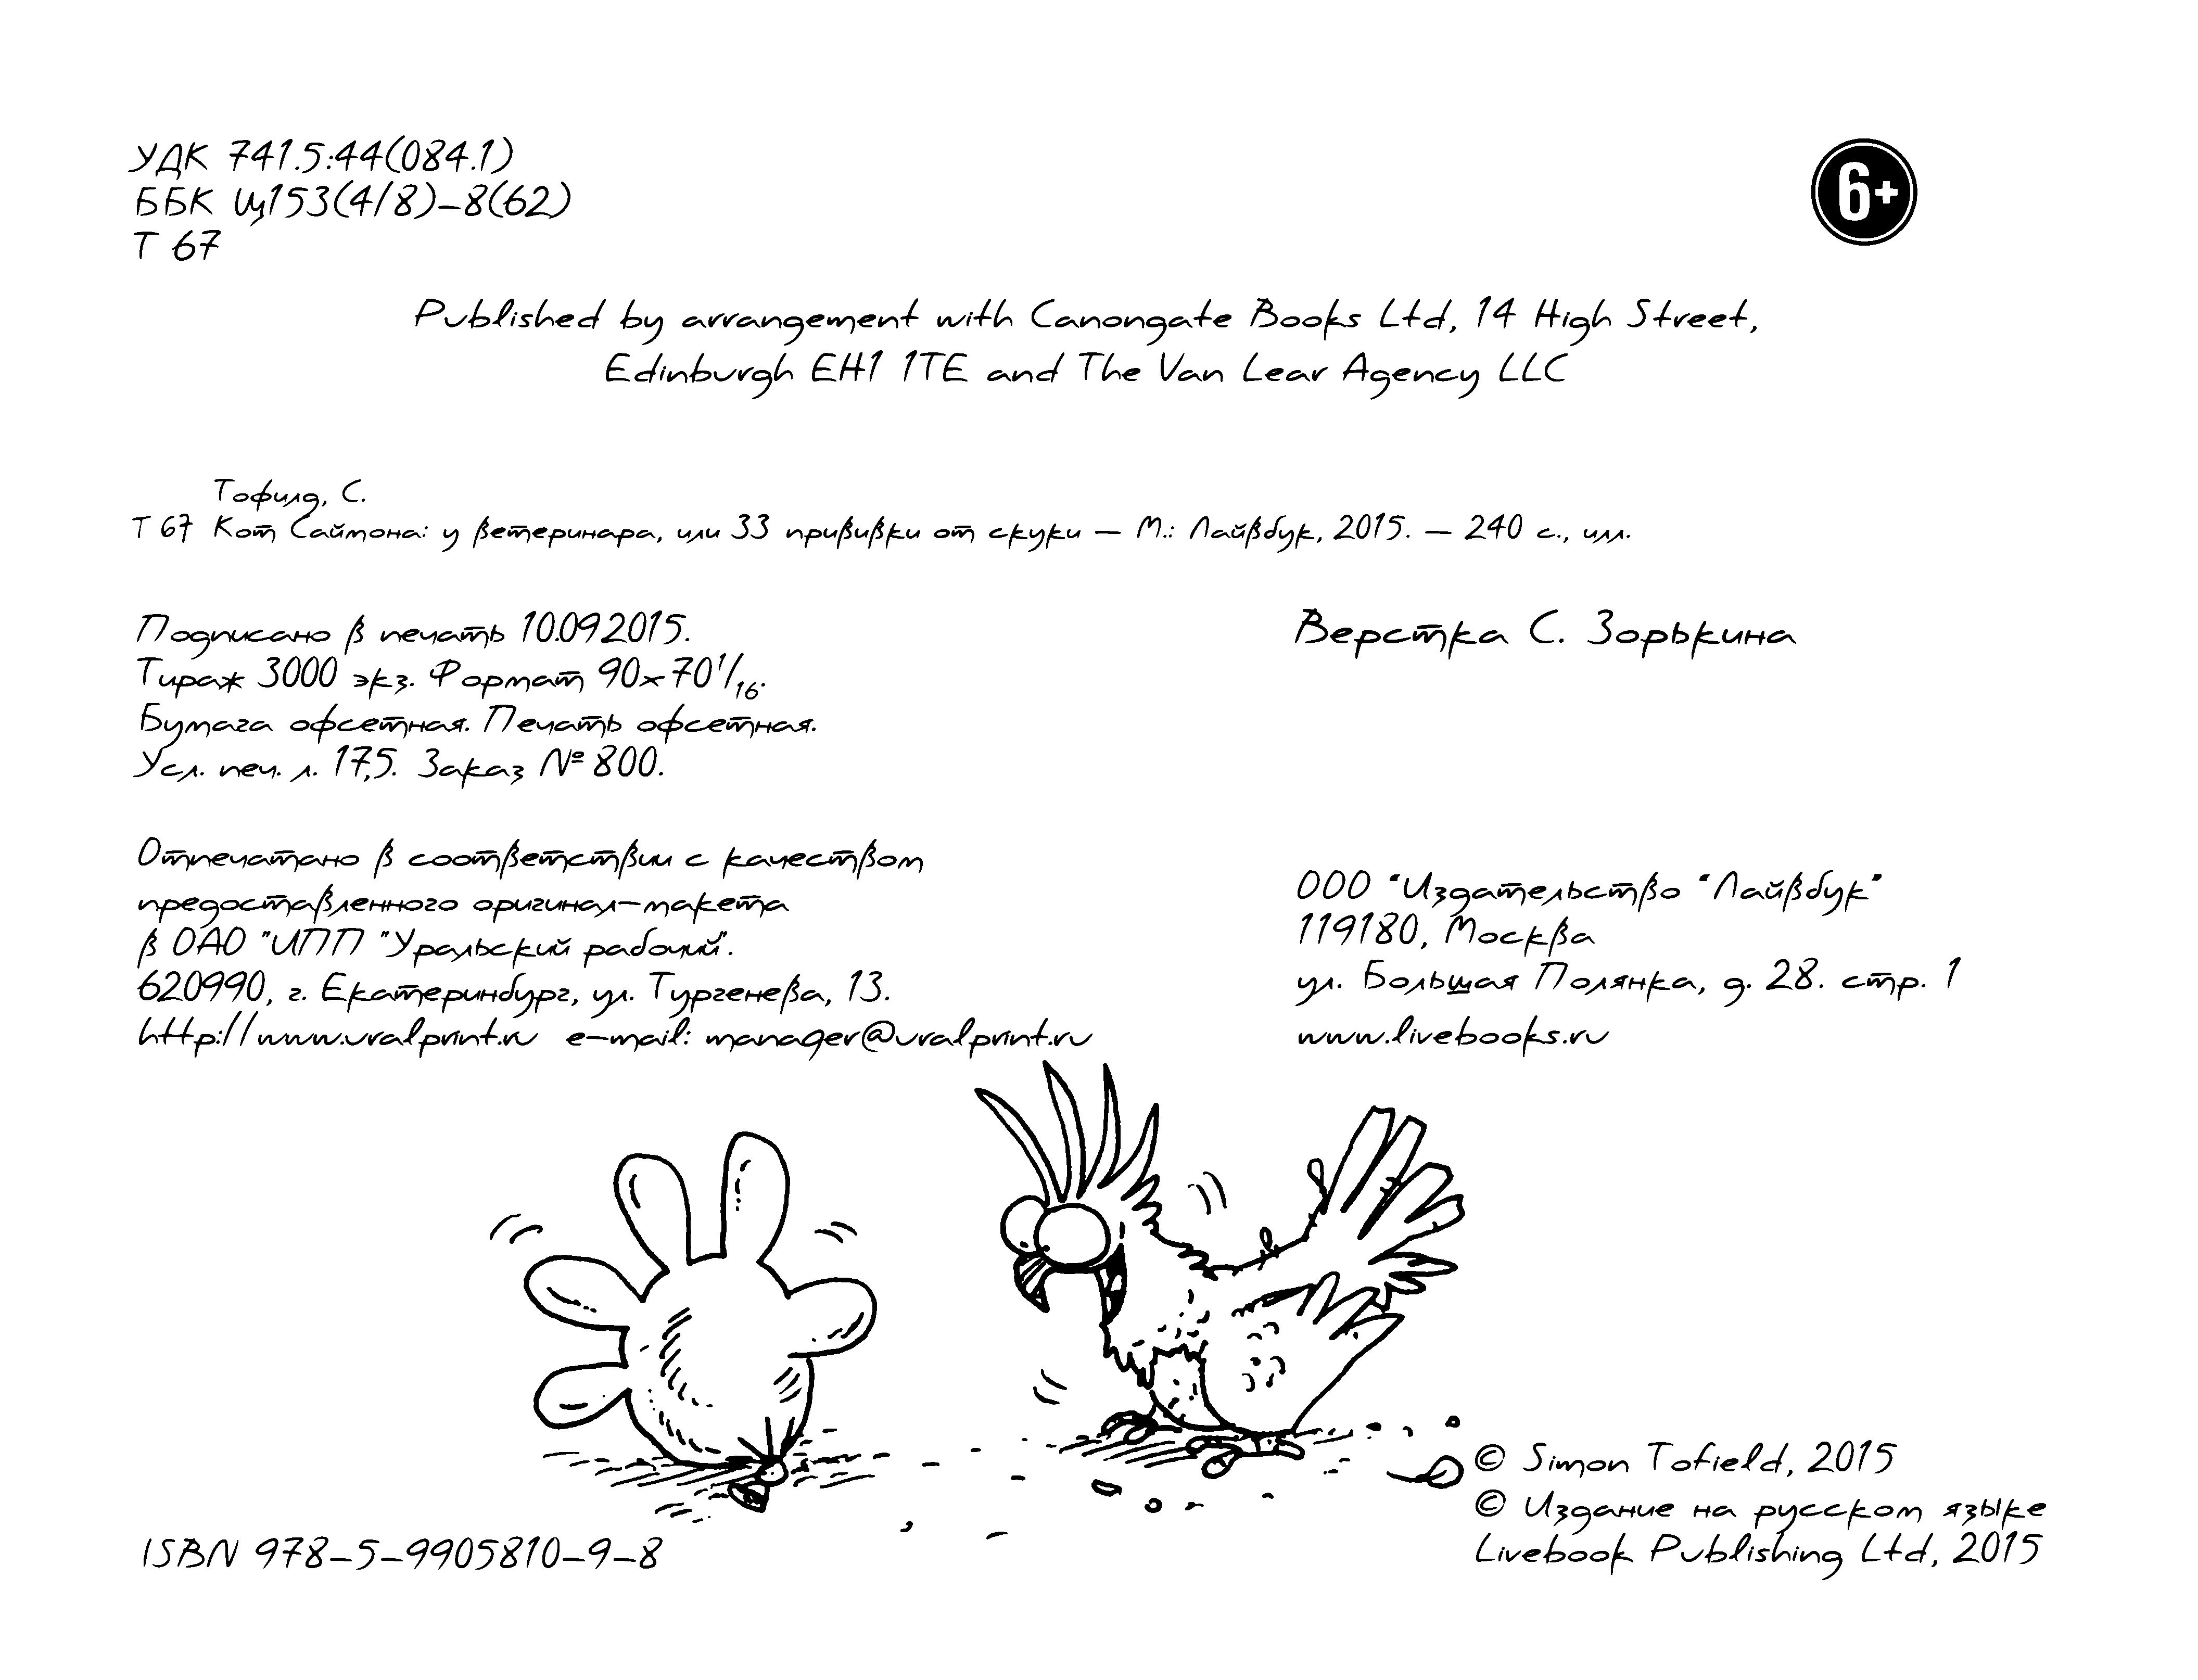 УДК 741.5:44(084.1)
ББК Щ153(4/8)-8(62)
Т 67
6+
Published by arrangement with Canongate Books Ltd, 14 High Street,
Edinburgh EH1 1TE and The Van Lear Agency LLC
Тофилд, С.
Т 67 Кот Саймона: у ветеринара, или 33 прививки от скуки — М.: Лайвбук, 2015. — 240 с., илл.
Подписано в печать 10.09.2015.
Тираж 3000 экз. Формат 90x70 1/16.
Бумага офсетная. Печать офсетная.
Усл. печ. л. 17,5. Заказ № 800.
Верстка С. Зорькина
Отпечатано в соответствии с качеством
предоставленного оригинал-макета
в ОАО "ИПП "Уральский рабочий".
620990, г. Екатеринбург, ул. Тургенева, 13.
http://www.uralprint.ru e-mail: manager@uralprint.ru
ООО "Издательство "Лайвбук"
119180, Москва
ул. Большая Полянка, д. 28. стр. 1
www.livebooks.ru
ISBN 978-5-9905810-9-8
© Simon Tofield, 2015
© Издание на русском языке
Livebook Publishing Ltd, 2015